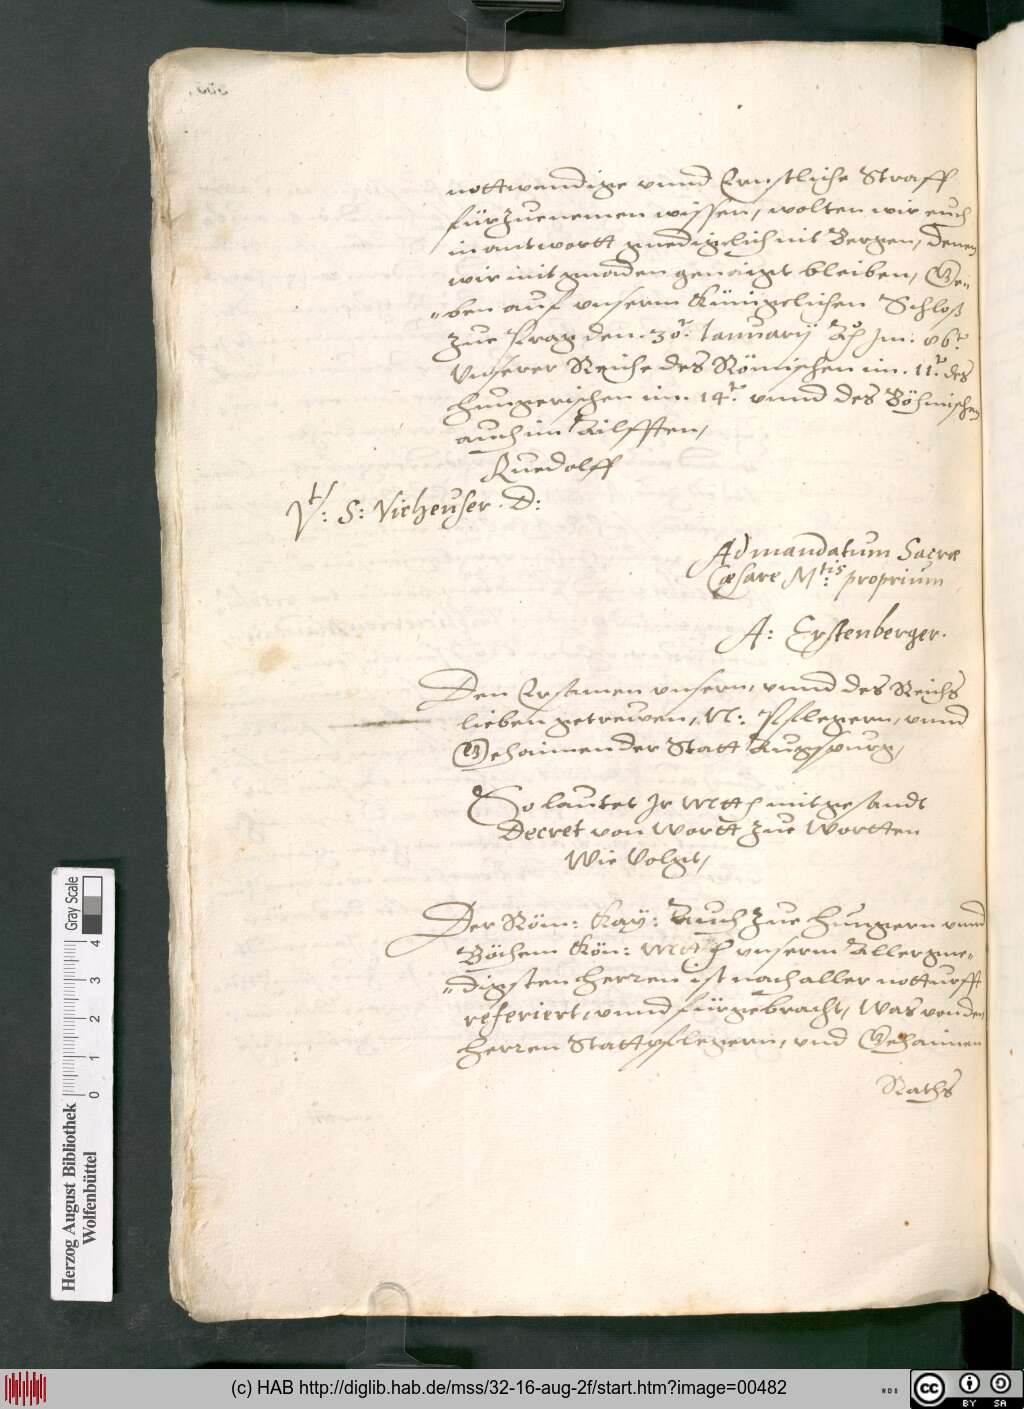 nottwendige vnnd Ernstliche Straff
fürzuenemen wissen, wolten wir euch
in antwortt gnedigelich nit Bergen, denen
wir mit gnaden genaigt bleiben, Ge„
„ben auf vnserm Künigelichen Schloß
zue Prag den. 30t. Ianuarÿ A° im: 86t.
Vnserer Reiche des Römischen im. 11t. des
hungerischen im. 14t. vnnd des Böhmischen
auch im Ailfften,
Ruedolff
Vt: S: Vieheuser. D:
Ad mandatum Sacræ
Cæsare Mtis: proprium
A: Erstenberger.
Den Ersamen vnsern, vnnd des Reichs
lieben getrewen, N: Pflegern, vnnd
Gehaimen der Statt Augspurg,
So lautet Ir Mtt mitgesandt
Decret von Wortt zue Wortten
Wie Volgt,
Der Röm: Kaÿ: Auch zue hungern vnnd
Böhem Kön: Mtt vnserm Allergne„
„digsten herren ist nach aller notturfft
referiert, vnnd fürgebracht, Was von den
herren Stattpflegern, vnd Gehaimen
Raths
Herzog August Bibliothek
Wolfenbüttel
Gray Scale
0 1 2 3 4
(c) HAB http://diglib.hab.de/mss/32-16-aug-2f/start.htm?image=00482
WDB
cc BY SA